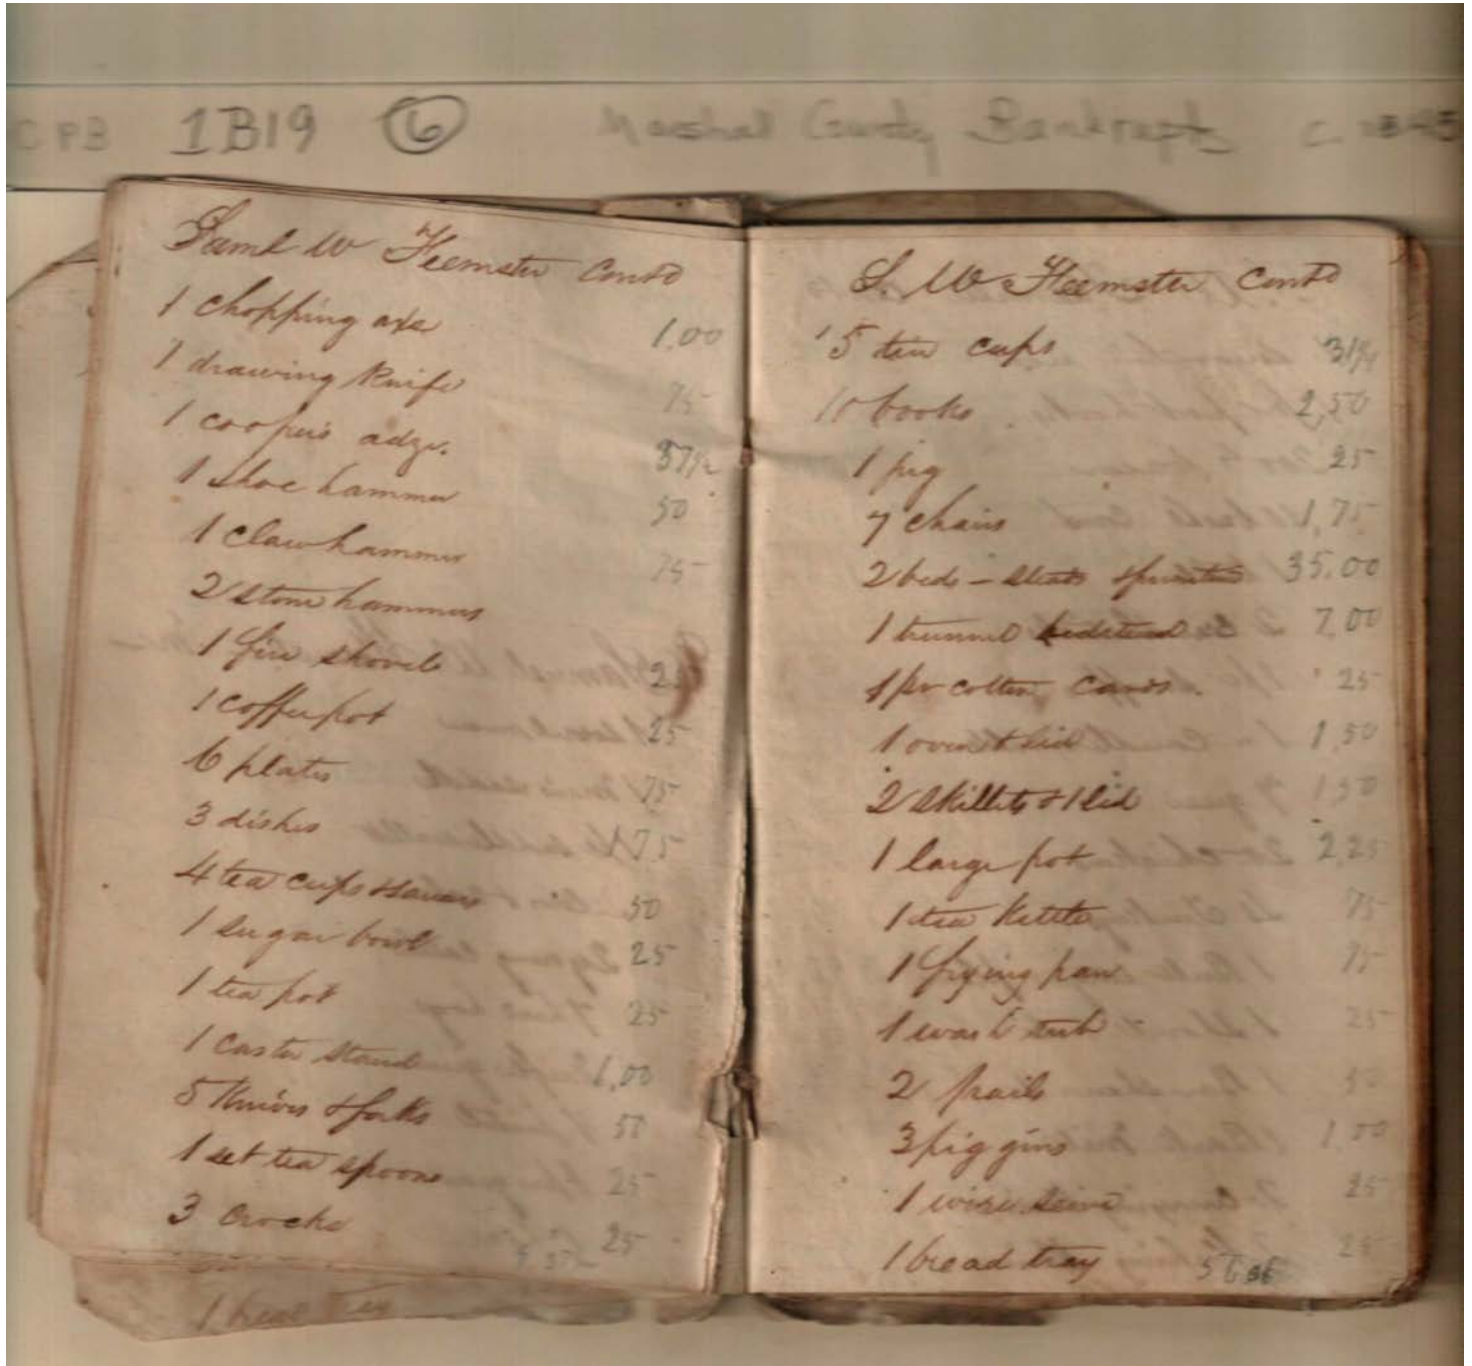 CPB 1B19 6 Marshal County Bankrupts C
Saml W Heemster Contd
1 chopping axe 1.00
1 drawing Knife 75
1 coopers adze. 37½
1 shoe hammer 50
1 claw hammer 75
2 stone hammers
1 fire shovel
1 coffee pot 25
6 plates 75
3 dishes 75
4 tea cups & saucers 50
1 sugar bowl 25
1 tea pot 25
1 caster stand 1,00
5 Knives & forks 50
1 set tea spoons 25
3 crocks 25
S. W Heemster Contd
5 tin cups 31¼
10 books 2,50
1 pig 25
7 chairs 1,75
2 beds - steads & furniture 35.00
1 trunnel bedstead 7,00
1 pr cotton cards. 25
1 oven & lid 1,50
2 skillets & 1 lid 1 50
1 large pot 2,25
1 tea Kettle 75
1 frying pan 75
1 wash tub 25
2 pails 50
3 piggins 1.00
1 wire seive 25
1 bread tray 25